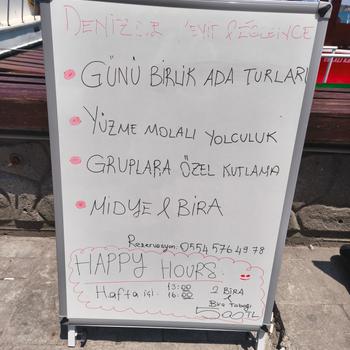 DENİZ KEYİF & EĞLENCE
GÜNÜ BİRLİK ADA TURLARI
YÜZME MOLALI YOLCULUK
GRUPLARA ÖZEL KUTLAMA
MİDYE & BİRA
Rezervasyon: 0554 576 49 78
HAPPY HOURS
Hafta içi 13:00
16:00
2 BİRA
&
Bira Tabağı
500TL